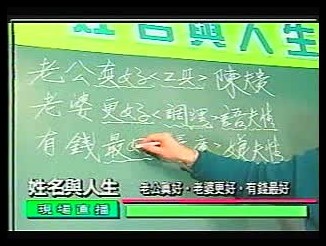 姓名與人生
老公真好<工具>陳
老婆更好<調 >語夫情
有錢最 夫情
姓名與人生 老公真好‧老婆更好‧有錢最好
現場直播